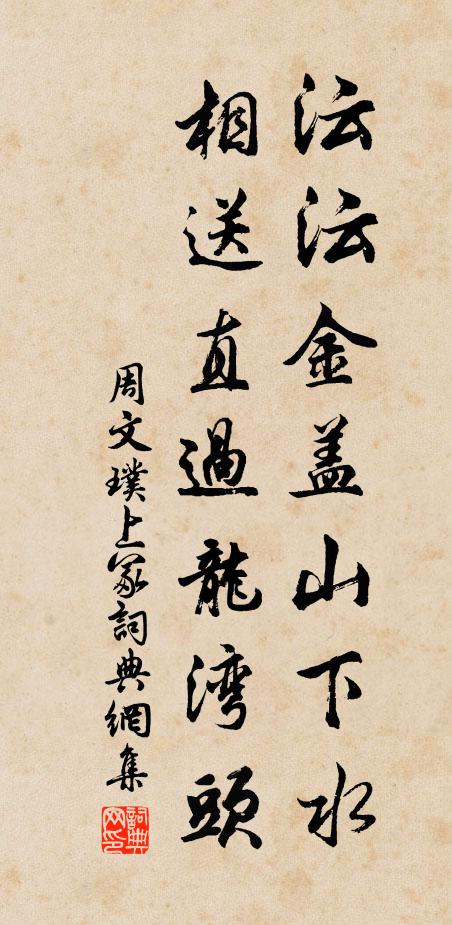 沄沄金盖山下水
相送直過龍湾頭
周文璞上冢詞典網集
詞典网印